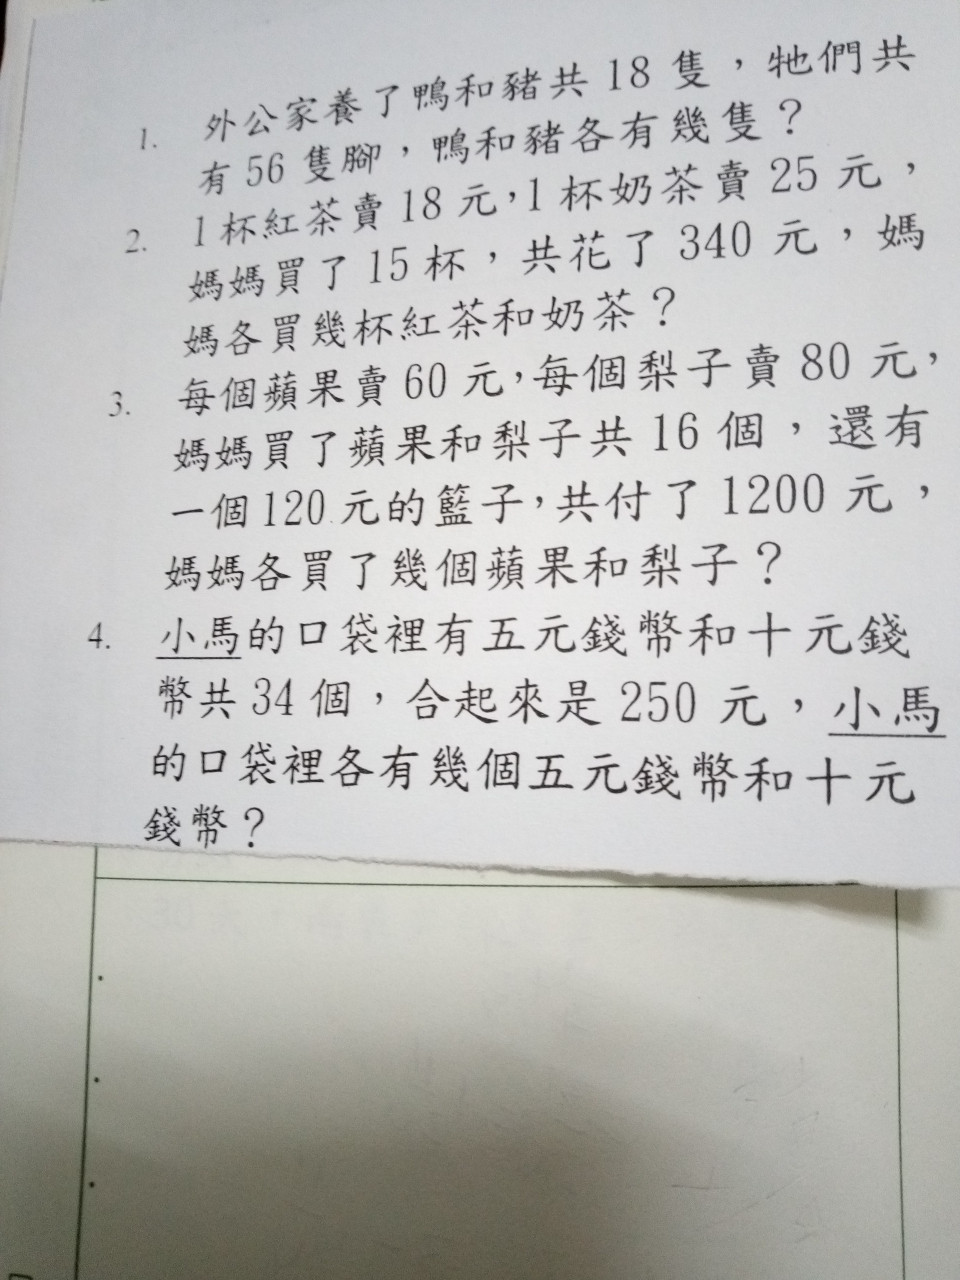 1. 外公家養了鴨和豬共 18 隻，牠們共
有 56 隻腳，鴨和豬各有幾隻？
2. 1 杯紅茶賣 18 元，1 杯奶茶賣 25 元，
媽媽買了 15 杯，共花了 340 元，媽
媽各買幾杯紅茶和奶茶？
3. 每個蘋果賣 60 元，每個梨子賣 80 元，
媽媽買了蘋果和梨子共 16 個，還有
一個 120 元的籃子，共付了 1200 元，
媽媽各買了幾個蘋果和梨子？
4. 小馬的口袋裡有五元錢幣和十元錢
幣共 34 個，合起來是 250 元，小馬
的口袋裡各有幾個五元錢幣和十元
錢幣？